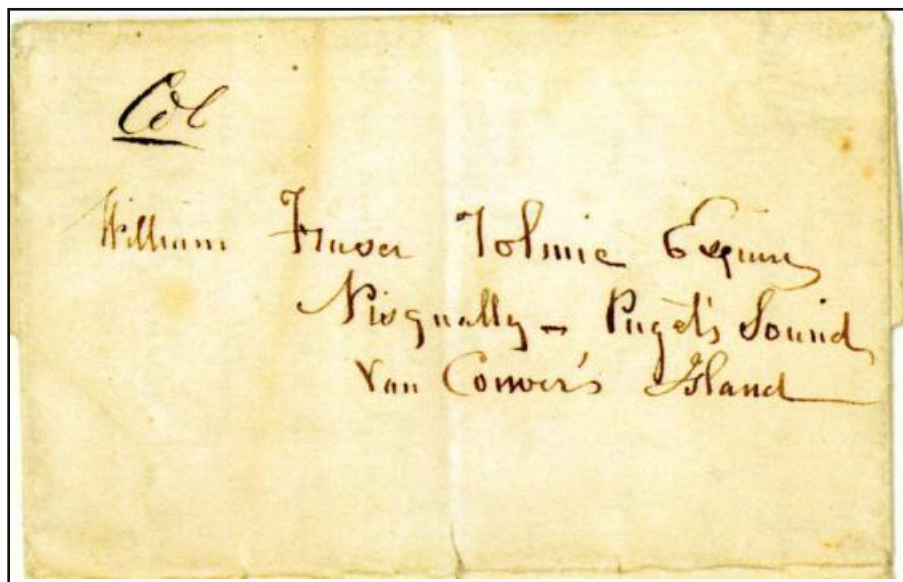 Col
William Fraser Tolmie Esquire
Nisqually - Puget's Sound
Van Couver's Island